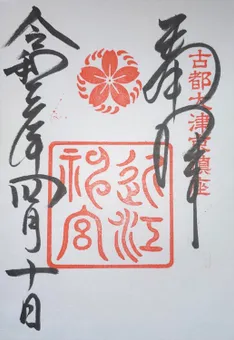 古都大津京鎮座
奉拝
近江神宮
令和三年四月十日